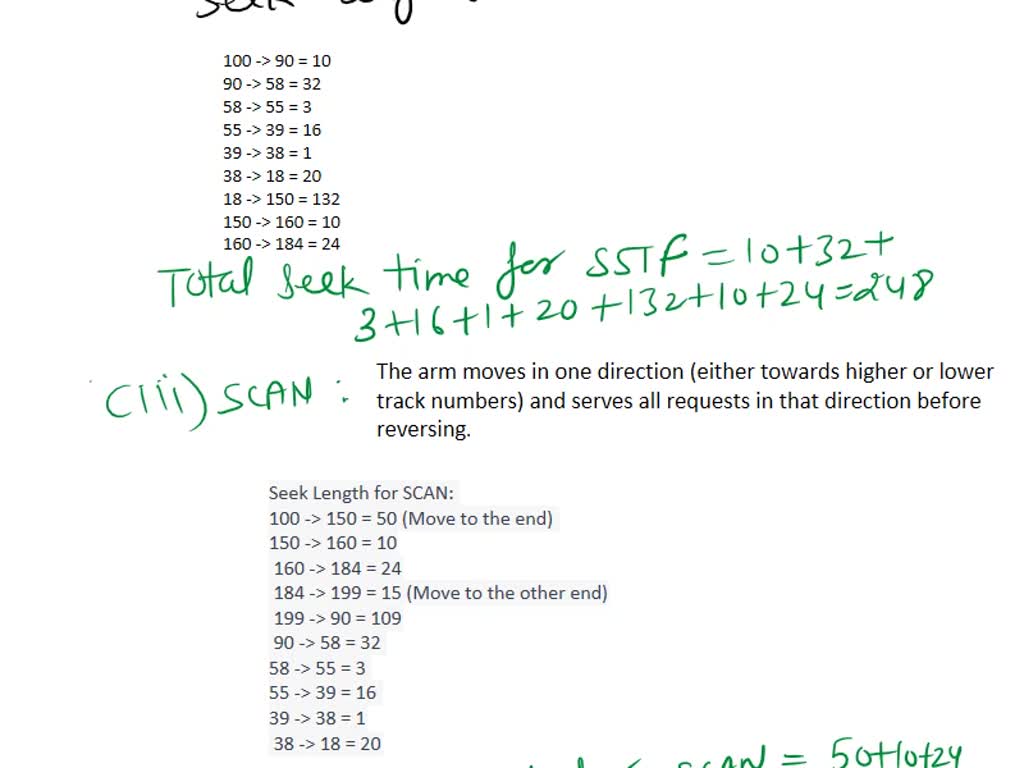 seek
100 -> 90 = 10
90 -> 58 = 32
58 -> 55 = 3
55 -> 39 = 16
39 -> 38 = 1
38 -> 18 = 20
18 -> 150 = 132
150 -> 160 = 10
160 -> 184 = 24
Total seek time for SSTF = 10+32+
3+16+1+20+132+10+24=248
(iii) SCAN :
The arm moves in one direction (either towards higher or lower
track numbers) and serves all requests in that direction before
reversing.
Seek Length for SCAN:
100 -> 150 = 50 (Move to the end)
150 -> 160 = 10
160 -> 184 = 24
184 -> 199 = 15 (Move to the other end)
199 -> 90 = 109
90 -> 58 = 32
58 -> 55 = 3
55 -> 39 = 16
39 -> 38 = 1
38 -> 18 = 20
SCAN = 50+10+24